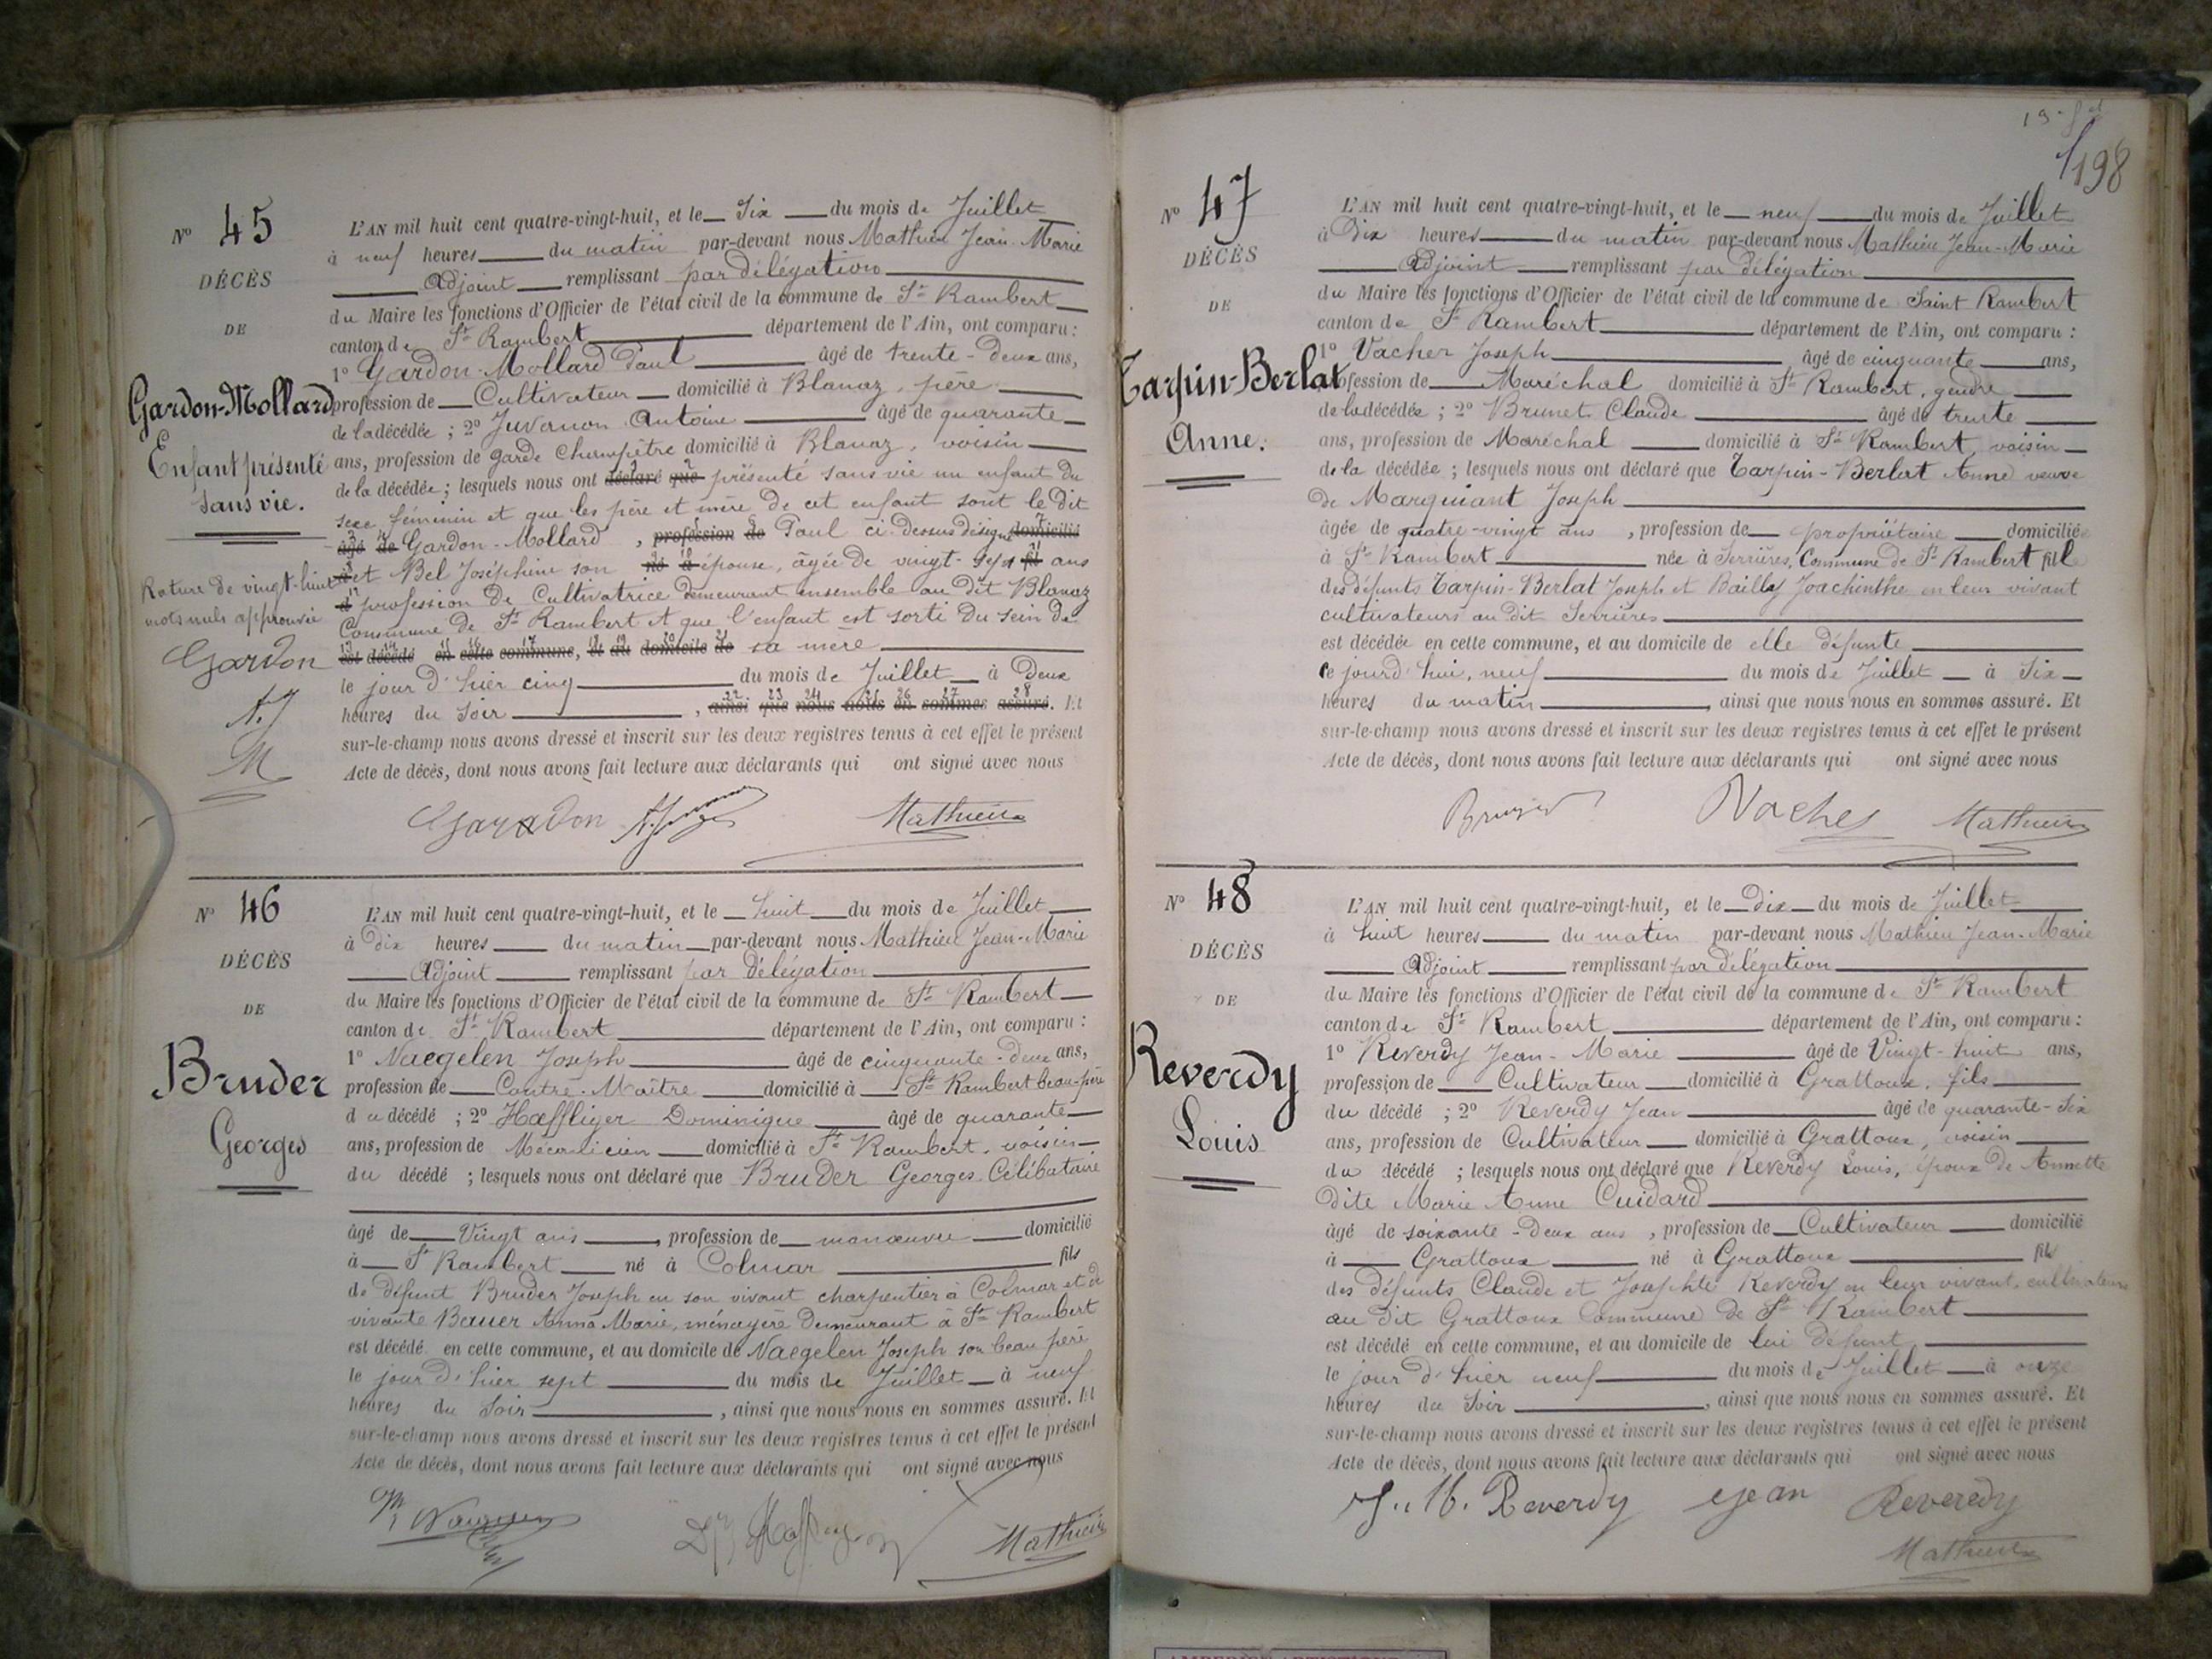 N° 45
DÉCÈS
DE
Gardon-Mollard
Enfant présenté
sans vie.
Rature de vingt-huit
mots nuls approuvée
Gardon
A.J
M
L'AN mil huit cent quatre-vingt-huit, et le Six du mois de Juillet
à neuf heures du matin par-devant nous Mathieu Jean-Marie
Adjoint remplissant par délégation
du Maire les fonctions d'Officier de l'état civil de la commune de St Rambert
canton de St Rambert département de l'Ain, ont comparu :
1° Gardon-Mollard Paul âgé de trente-deux ans,
profession de Cultivateur domicilié à Blanaz, père
de la décédée ; 2° Juvanon Antoine âgé de quarante
ans, profession de garde Champêtre domicilié à Blanaz, voisin
de la décédée ; lesquels nous ont déclaré que présenté sans vie un enfant du
sexe féminin et que les père et mère de cet enfant sont le dit
âgé de Gardon-Mollard , profession de Paul ci-dessus désigné domicilié
à et Bel Joséphine son né à épouse, âgée de vingt-sept fil ans
d profession de Cultivatrice demeurant ensemble au dit Blanaz
Commune de St Rambert et que l'enfant est sorti du sein de
est décédé en cette commune, et au domicile de sa mère
le jour d'hier cinq du mois de Juillet à Deux
heures du Soir , ainsi que nous nous en sommes assuré. Et
sur-le-champ nous avons dressé et inscrit sur les deux registres tenus à cet effet le présent
Acte de décès, dont nous avons fait lecture aux déclarants qui ont signé avec nous
Gardon Mathieu
N° 46
DÉCÈS
DE
Bruder
Georges
L'AN mil huit cent quatre-vingt-huit, et le huit du mois de Juillet
à Dix heures du matin par-devant nous Mathieu Jean-Marie
Adjoint remplissant par Délégation
du Maire les fonctions d'Officier de l'état civil de la commune de St Rambert
canton de St Rambert département de l'Ain, ont comparu :
1° Naegelen Joseph âgé de cinquante-deux ans,
profession de Contre-Maître domicilié à St Rambert beau-père
du décédé ; 2° Hæffliger Dominique âgé de quarante
ans, profession de Mécanicien domicilié à St Rambert, voisin
du décédé ; lesquels nous ont déclaré que Bruder Georges Célibataire
âgé de Vingt ans , profession de manœuvre domicilié
à St Rambert né à Colmar fils
de défunt Bruder Joseph en son vivant charpentier à Colmar et de
vivante Bauer Anna Marie, ménagère demeurant à St Rambert
est décédé en cette commune, et au domicile de Naegelen Joseph son beau père
le jour d'hier sept du mois de Juillet à neuf
heures du Soir , ainsi que nous nous en sommes assuré. Et
sur-le-champ nous avons dressé et inscrit sur les deux registres tenus à cet effet le présent
Acte de décès, dont nous avons fait lecture aux déclarants qui ont signé avec nous
Mathieu
198
N° 47
DÉCÈS
DE
Tarpin-Berlat
Anne.
L'AN mil huit cent quatre-vingt-huit, et le neuf du mois de Juillet
à Dix heures du matin par-devant nous Mathieu Jean-Marie
Adjoint remplissant par délégation
du Maire les fonctions d'Officier de l'état civil de la commune de Saint Rambert
canton de St Rambert département de l'Ain, ont comparu :
1° Vacher Joseph âgé de cinquante ans,
profession de Maréchal domicilié à St Rambert, gendre
de la décédée ; 2° Brunet Claude âgé de trente
ans, profession de Maréchal domicilié à St Rambert, voisin
de la décédée ; lesquels nous ont déclaré que Tarpin-Berlat Anne veuve
de Marguiant Joseph
âgée de quatre-vingt ans , profession de propriétaire domiciliée
à St Rambert née à Serrières, Commune de St Rambert fille
des défunts Tarpin-Berlat Joseph et Bailly Joachinthe en leur vivant
cultivateurs au dit Serrières
est décédée en cette commune, et au domicile de elle défunte
ce jourd'hui, neuf du mois de Juillet à Six
heures du matin , ainsi que nous nous en sommes assuré. Et
sur-le-champ nous avons dressé et inscrit sur les deux registres tenus à cet effet le présent
Acte de décès, dont nous avons fait lecture aux déclarants qui ont signé avec nous
Vacher Mathieu
N° 48
DÉCÈS
DE
Reverdy
Louis
L'AN mil huit cent quatre-vingt-huit, et le Dix du mois de Juillet
à huit heures du matin par-devant nous Mathieu Jean-Marie
Adjoint remplissant par délégation
du Maire les fonctions d'Officier de l'état civil de la commune de St Rambert
canton de St Rambert département de l'Ain, ont comparu :
1° Reverdy Jean-Marie âgé de Vingt-huit ans,
profession de Cultivateur domicilié à Grattoux, fils
du décédé ; 2° Reverdy Jean âgé de quarante-six
ans, profession de Cultivateur domicilié à Grattoux, voisin
du décédé ; lesquels nous ont déclaré que Reverdy Louis, époux de Annette
dite Marie Anne Cuidard
âgé de soixante-Deux ans , profession de Cultivateur domicilié
à Grattoux né à Grattoux fils
des défunts Claude et Josephte Reverdy en leur vivant cultivateurs
au dit Grattoux Commune de St Rambert
est décédé en cette commune, et au domicile de lui défunt
le jour d'hier neuf du mois de Juillet à onze
heures du Soir , ainsi que nous nous en sommes assuré. Et
sur-le-champ nous avons dressé et inscrit sur les deux registres tenus à cet effet le présent
Acte de décès, dont nous avons fait lecture aux déclarants qui ont signé avec nous
J. M. Reverdy Jean Reveredy
Mathieu